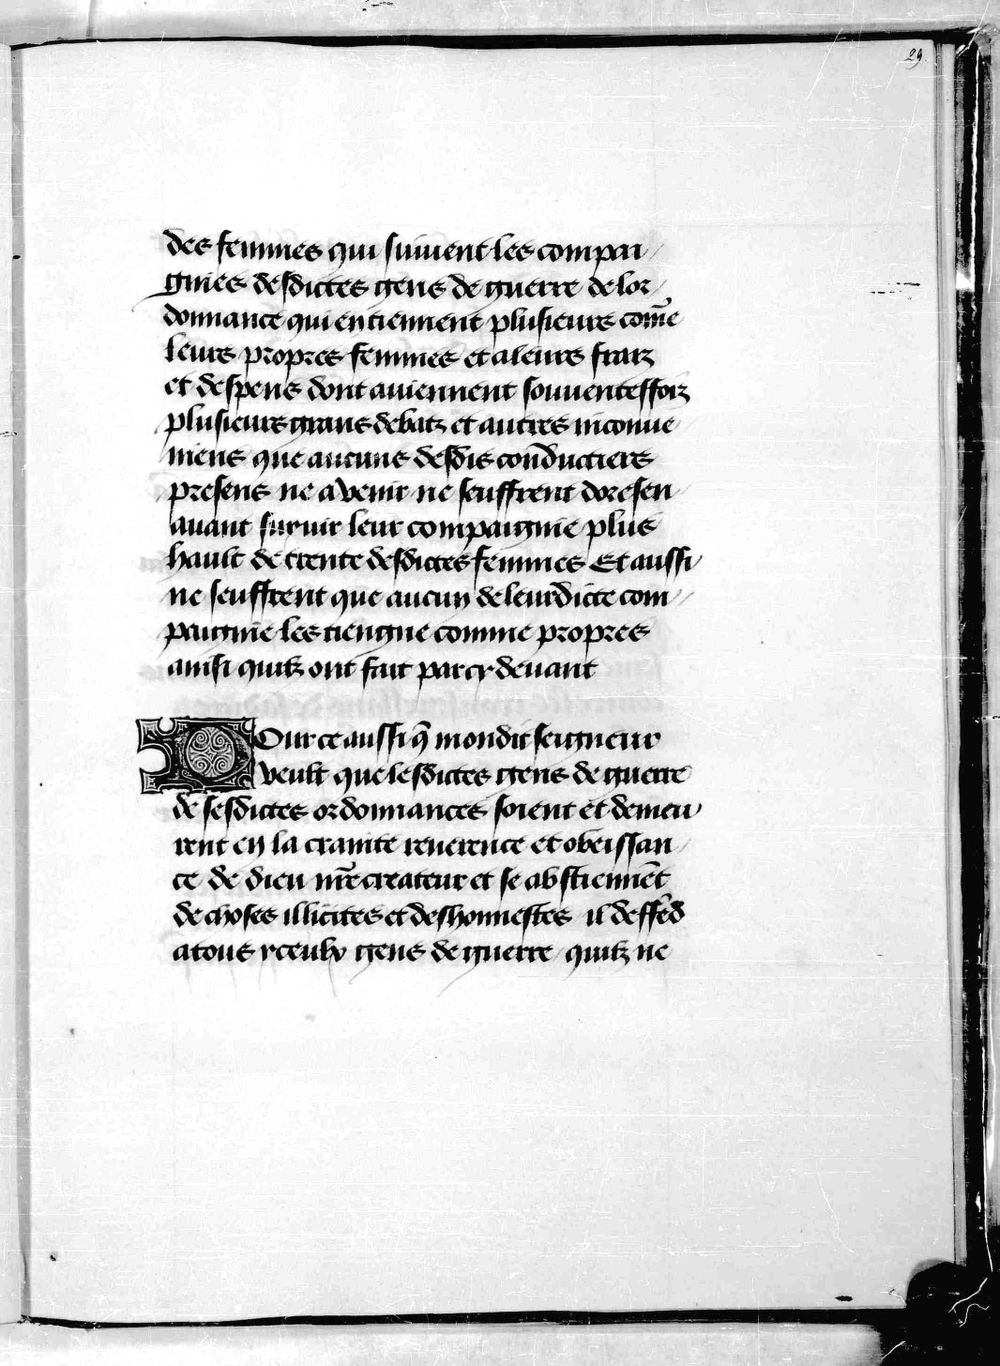 29
des femmes qui suiuent les compai
gnies desdictes gens de guerre de lor
donnance qui en tiennent plusieurs com̃e
leurs propres femmes et a leurs fraiz
et despens dont auiennent souuenteffoiz
plusieurs grans debatz et autres inconue
niens que aucuns desdis conductiers
presens ne a venir ne seuffrent doresen
auant suiuir leur compaignie plus
hault de trente desdictes femmes Et aussi
ne seuffrent que aucun de leurdicte com
paignie les tiengne comme propres
ainsi quilz ont fait par cy deuant
Pour ce aussi q̃ mondit seigneur
veult que lesdictes gens de guerre
de sesdictes ordonnances soient et demeu
rent en la crainte reuerence et obeissan
ce de dieu nr̃e createur et se abstiennẽt
de choses illicites et deshonnestes il deffẽd
a tous yceulx gens de guerre quilz ne